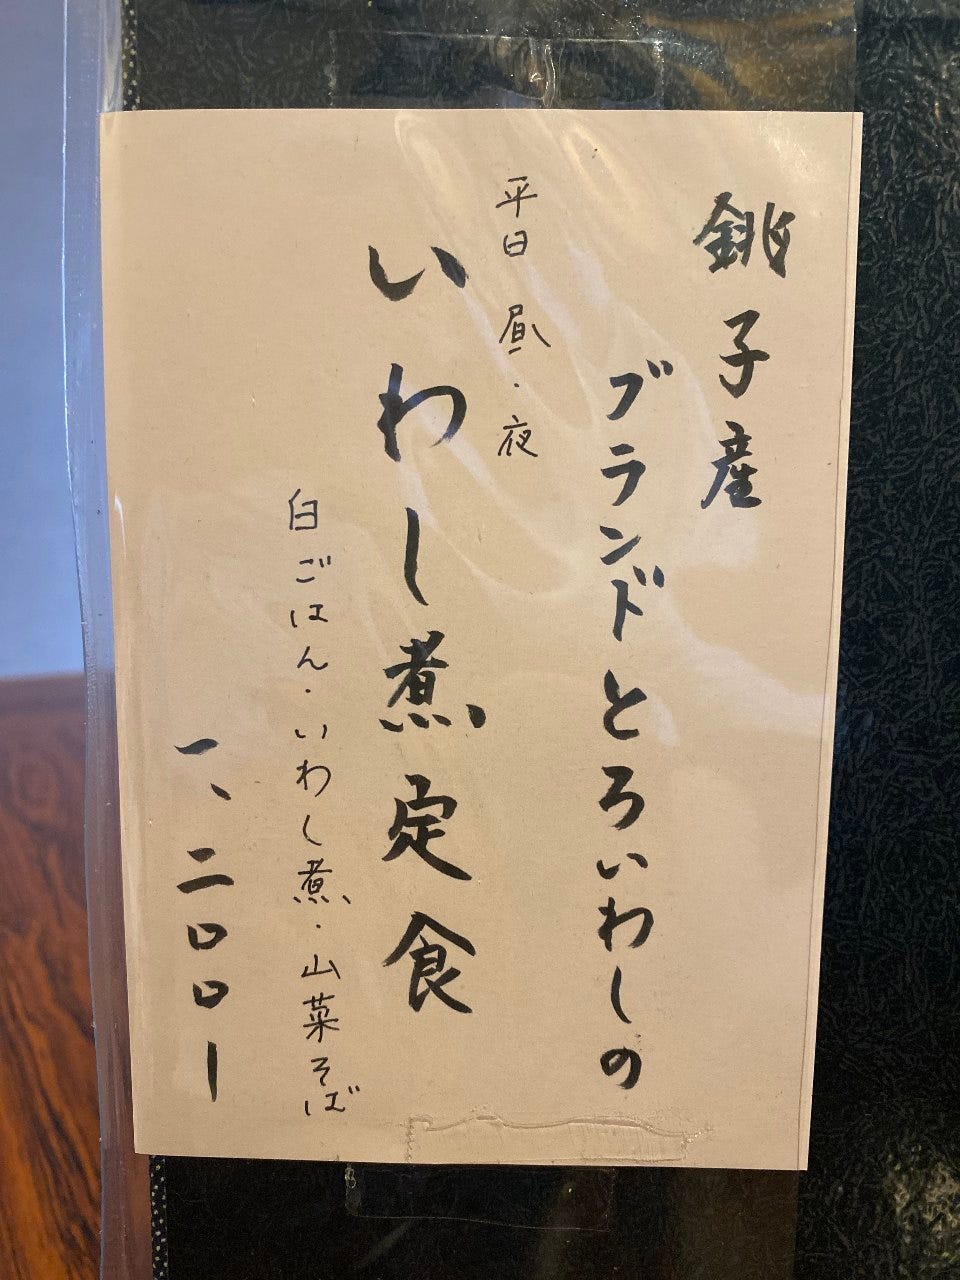 銚子産
ブランドとろいわしの
平日 昼・夜
いわし煮定食
白ごはん・いわし煮・山菜そば
一、二〇〇ー